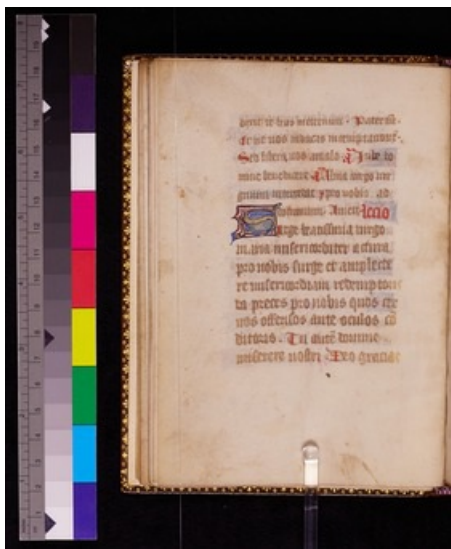 Pater nr̄
Et ne nos inducas in temptationē
Sed libera nos a malo Iube do
mine benedicere Alma virgo vir
ginum intercedat pro nobis ad
dominum. Amen lectio
Surge beatissima virgo
maria misericorditer accura
pro nobis surge et amplecte
re misericordiam redemptoris
da preces pro nobis quos cer
nis offensos ante oculos cō
ditoris. Tu autē domine
miserere nostri Deo gracias